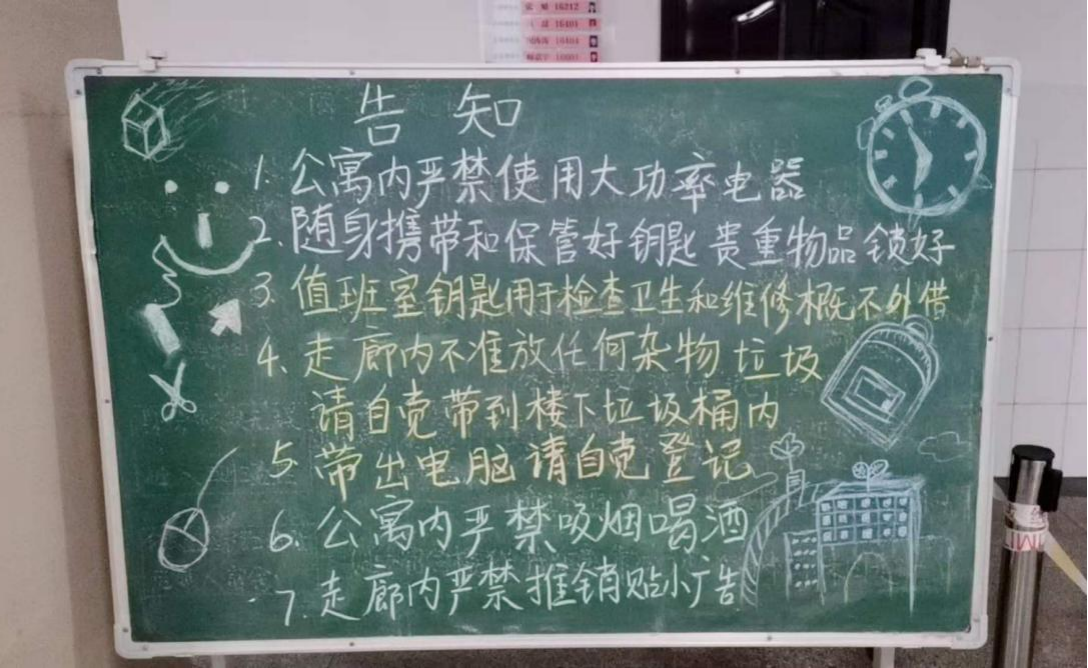 告知
1.公寓内严禁使用大功率电器
2.随身携带和保管好钥匙贵重物品锁好
3.值班室钥匙用于检查卫生和维修概不外借
4.走廊内不准放任何杂物垃圾
请自觉带到楼下垃圾桶内
5.带出电脑请自觉登记
6.公寓内严禁吸烟喝酒
7.走廊内严禁推销贴小广告